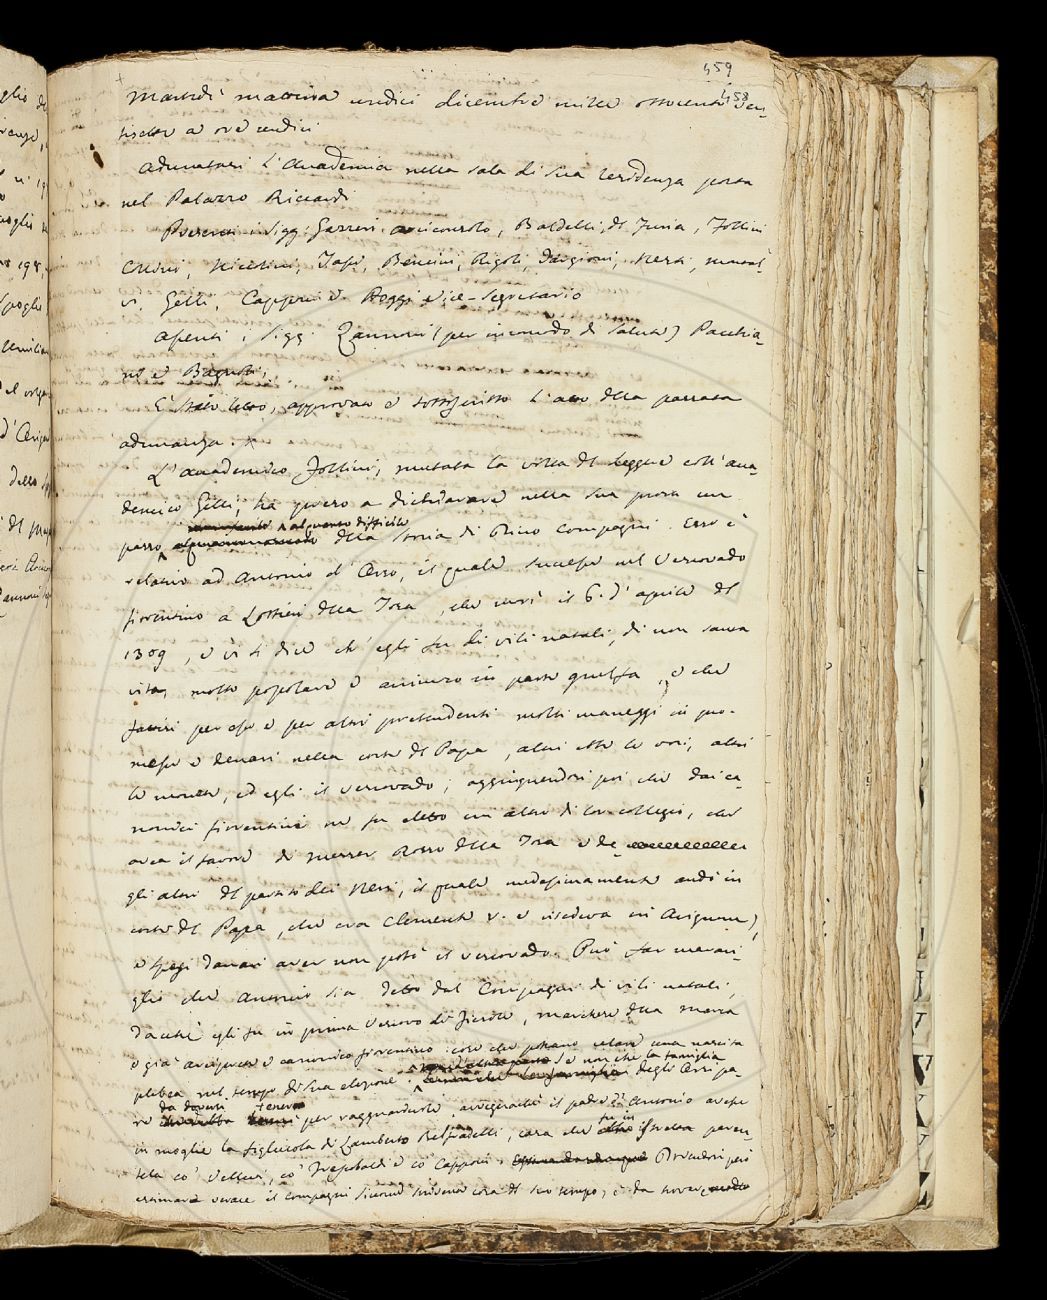 459
458
Martedì mattina undici dicembre mille ottocento ven-
tisette a ore undici
Adunatasi l'Accademia nella sala di sua residenza posta
nel Palazzo Riccardi
Presenti i Sigg. Gazzeri Arciconsolo, Baldelli, del Furia, Follini
Collini, Niccolini, Bencini, Rigoli, Targioni, Nesti,
Gelli, Capponi e Poggi Vice-Segretario
Assenti i Sigg. Zannoni (per incomodo di salute) Pacchia-
ni e Bagnoli,
È stato letto, approvato e sottoscritto l'atto della passata
adunanza.
L'Accademico Follini, mutata la volta di leggere coll'Acca
demico Gelli, ha preso a dichiarare nella sua prosa un
alquanto difficile
passo della Storia di Dino Compagni. Esso è
relativo ad Antonio d'Orso, il quale successe nel Vescovado
fiorentino a Lottieri della Tosa, che morì il 6. d'aprile del
1309, e vi si dice ch'egli fu di vili natali, di non santa
vita, molto popolare e animoso in parte guelfa, e che
fattisi per esso e per altri pretendenti molti maneggi di pro-
messe e denari nella corte del Papa, altri ebbe le voci, altri
le monete, ed egli il Vescovado; aggiugnendosi poi che dai ca-
nonici fiorentini ne fu eletto un altro di lor collegio, che
avea il favore di messer Rosso della Tosa e de-
gli altri del partito dei Neri, il quale medesimamente andò in
corte del Papa, (che era Clemente V. e risedeva in Avignone)
e spesi danari aver non potè il vescovado. Può far maravi-
glia che Antonio sia detto dal Compagni di vili natali,
dacchè egli fu in prima Vescovo di Fiesole, marchese della marca
e già arciprete e canonico fiorentino: cose che ostano una nascita
se non che la famiglia
plebea nel tempo di sua elezione: degli Orsi pa-
da doversi tenere
re per ragguardevole, avvegnachè il padre d'Antonio avesse
fu in
in moglie la figliuola di Lamberto Belfradelli, casa che stretta paren-
tela co' Velluti, co' Frescobaldi e co' Capponi. Dovendosi però
estimare verace il Compagni siccome scrittore di cose del suo tempo, è da trovar modo